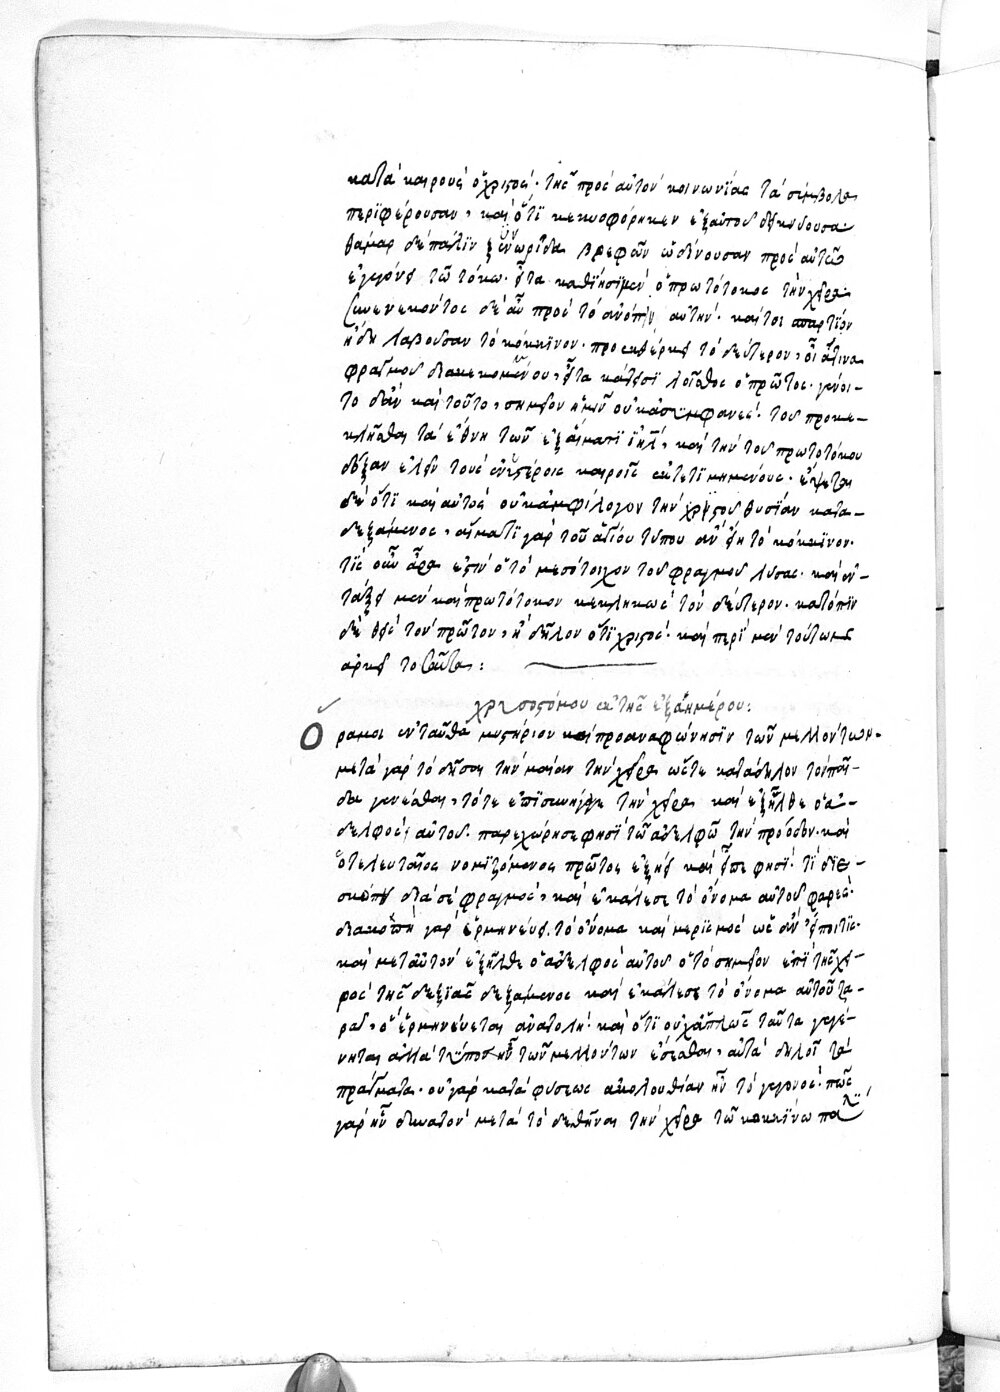 κατὰ καιροὺς ὁ χριστός· τῆς πρὸς αὐτὸν κοινωνίας τὰ σύμβολα
περιφέρουσαν, καὶ ὅτι κεκυοφόρηκεν ἐξ αὐτοῦ δεικνύουσα
θάμαρ δὲ πάλιν ξυνωρίδα βρεφῶν ὠδίνουσαν πρὸς αὐτῶ
ἐγεγόνει τῶ τόκω· εἶτα καθίησι μὲν ὁ πρωτότοκος τὴν χεῖρα·
ξυνενεκόντος δὲ αὖ πρὸς τὸ ὀπίσω αὐτὴν· καίτοι ἀπαρτίον
ἤδη λαβοῦσαν τὸ κόκκινον· προεκθέρει τὸ δεύτερον, οἷά τινα
φραγμοῦ διακεκομμένου, εἶτα κάτεισι λοῖσθος ὁ πρῶτος· γένοι-
το δ' ἂν καὶ τοῦτο, σημεῖον ἡμῖν οὐκ ἀσυμφανές· τοῦ προκε-
κλῆσθαι τὰ ἔθνη τῶν ἐξ αἵματι ἰηλ, καὶ τὴν τοῦ πρωτοτόκου
δόξαν ἑλεῖν τοὺς ἐν ὑστέροις καιροῖς ἐκτετιμημένους· ἕψεται
δὲ ὅτι καὶ αὐτὸς οὐκ ἀμφίλογον τὴν χριστοῦ θυσίαν κατα-
δεξάμενος, αἵματι γὰρ τοῦ ἁγίου τύπου ἂν εἴη τὸ κόκκινον·
τίς οὖν ἄρα ἐστὶν ὁ τὸ μεσότοιχον τοῦ φραγμοῦ λύσας· καὶ ἐν
τάξει μὲν καὶ πρωτότοκον κεκληκὼς τὸν δεύτερον· κατόπιν
δὲ θεὶς τὸν πρῶτον, ἢ δῆλον ὅτι χριστός· καὶ περὶ μὲν τούτων
ἀρκεῖ τοσαῦτα:
χρυσοστόμου ἐκ τῆς ἑξαημέρου:
Ὅραμοι ἐνταῦθα μυστήριον καὶ προαναφώνησιν τῶν μελλόντων·
μετὰ γὰρ τὸ δῆσαι τὴν μαίαν τὴν χεῖρα ὥστε κατάδηλον τὸ παι-
δίον γενέσθαι, τότε ἐπισυνήγαγε τὴν χεῖρα καὶ ἐξῆλθε ὁ ἀ-
δελφὸς αὐτοῦ· παρεχώρησε φησὶ τῶ ἀδελφῶ τὴν πρόοδον· καὶ
ὁ τελευταῖος νομιζόμενος πρῶτος ἐξήει καὶ εἶπε φησί· τί διε-
σκόπη διὰ σὲ φραγμὸς, καὶ ἐκάλεσε τὸ ὄνομα αὐτοῦ φαρές·
διακοπὴ γὰρ ἑρμηνεύει τὸ ὄνομα καὶ μερισμὸς ὡς ἂν εἴποι τίς·
καὶ μετ αὐτὸν ἐξῆλθε ὁ ἀδελφὸς αὐτοῦ ὁ τὸ σημεῖον ἐπὶ τῆς χει-
ρὸς τῆς δεξιᾶς δεξάμενος καὶ ἐκάλεσε τὸ ὄνομα αὐτοῦ ζα-
ρα, ὃ ἑρμηνεύεται ἀνατολή· καὶ ὅτι οὐχ ἁπλῶς ταῦτα γεγέ-
νηται ἀλλὰ τύπος ἦν τῶν μελλόντων ἔσεσθαι, αὐτὰ δηλοῖ τὰ
πράγματα· οὐ γὰρ κατὰ φύσεως ἀκολουθίαν ἦν τὸ γεγονός· πῶς
γὰρ ἦν δυνατὸν μετὰ τὸ δεθῆναι τὴν χεῖρα τῶ κοκκίνω πάλιν